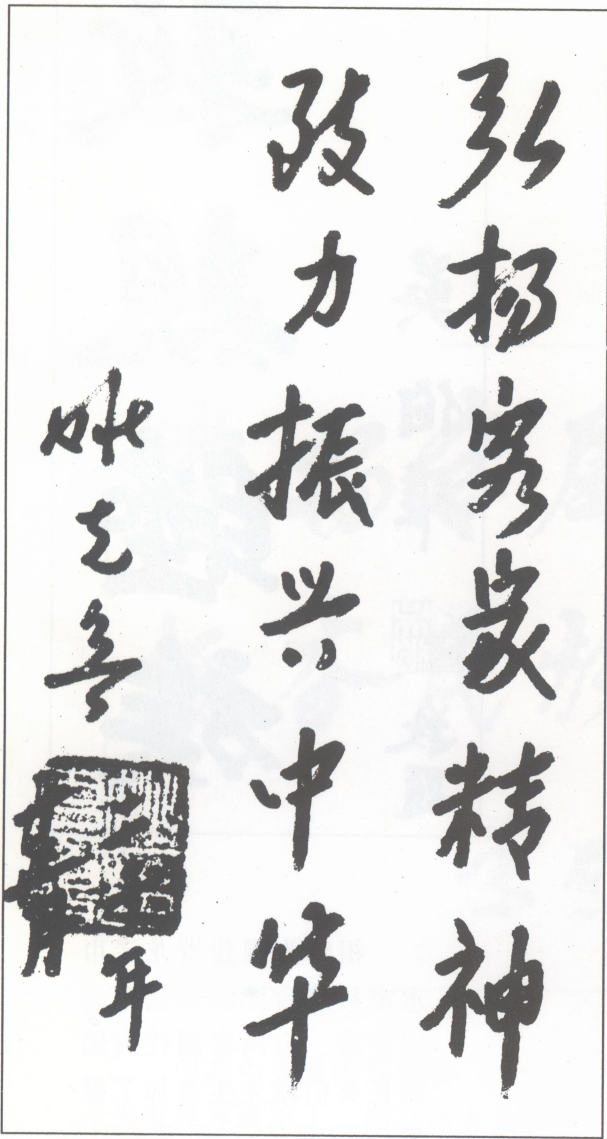 弘扬客家精神
致力振兴中华
姚美良
年
月